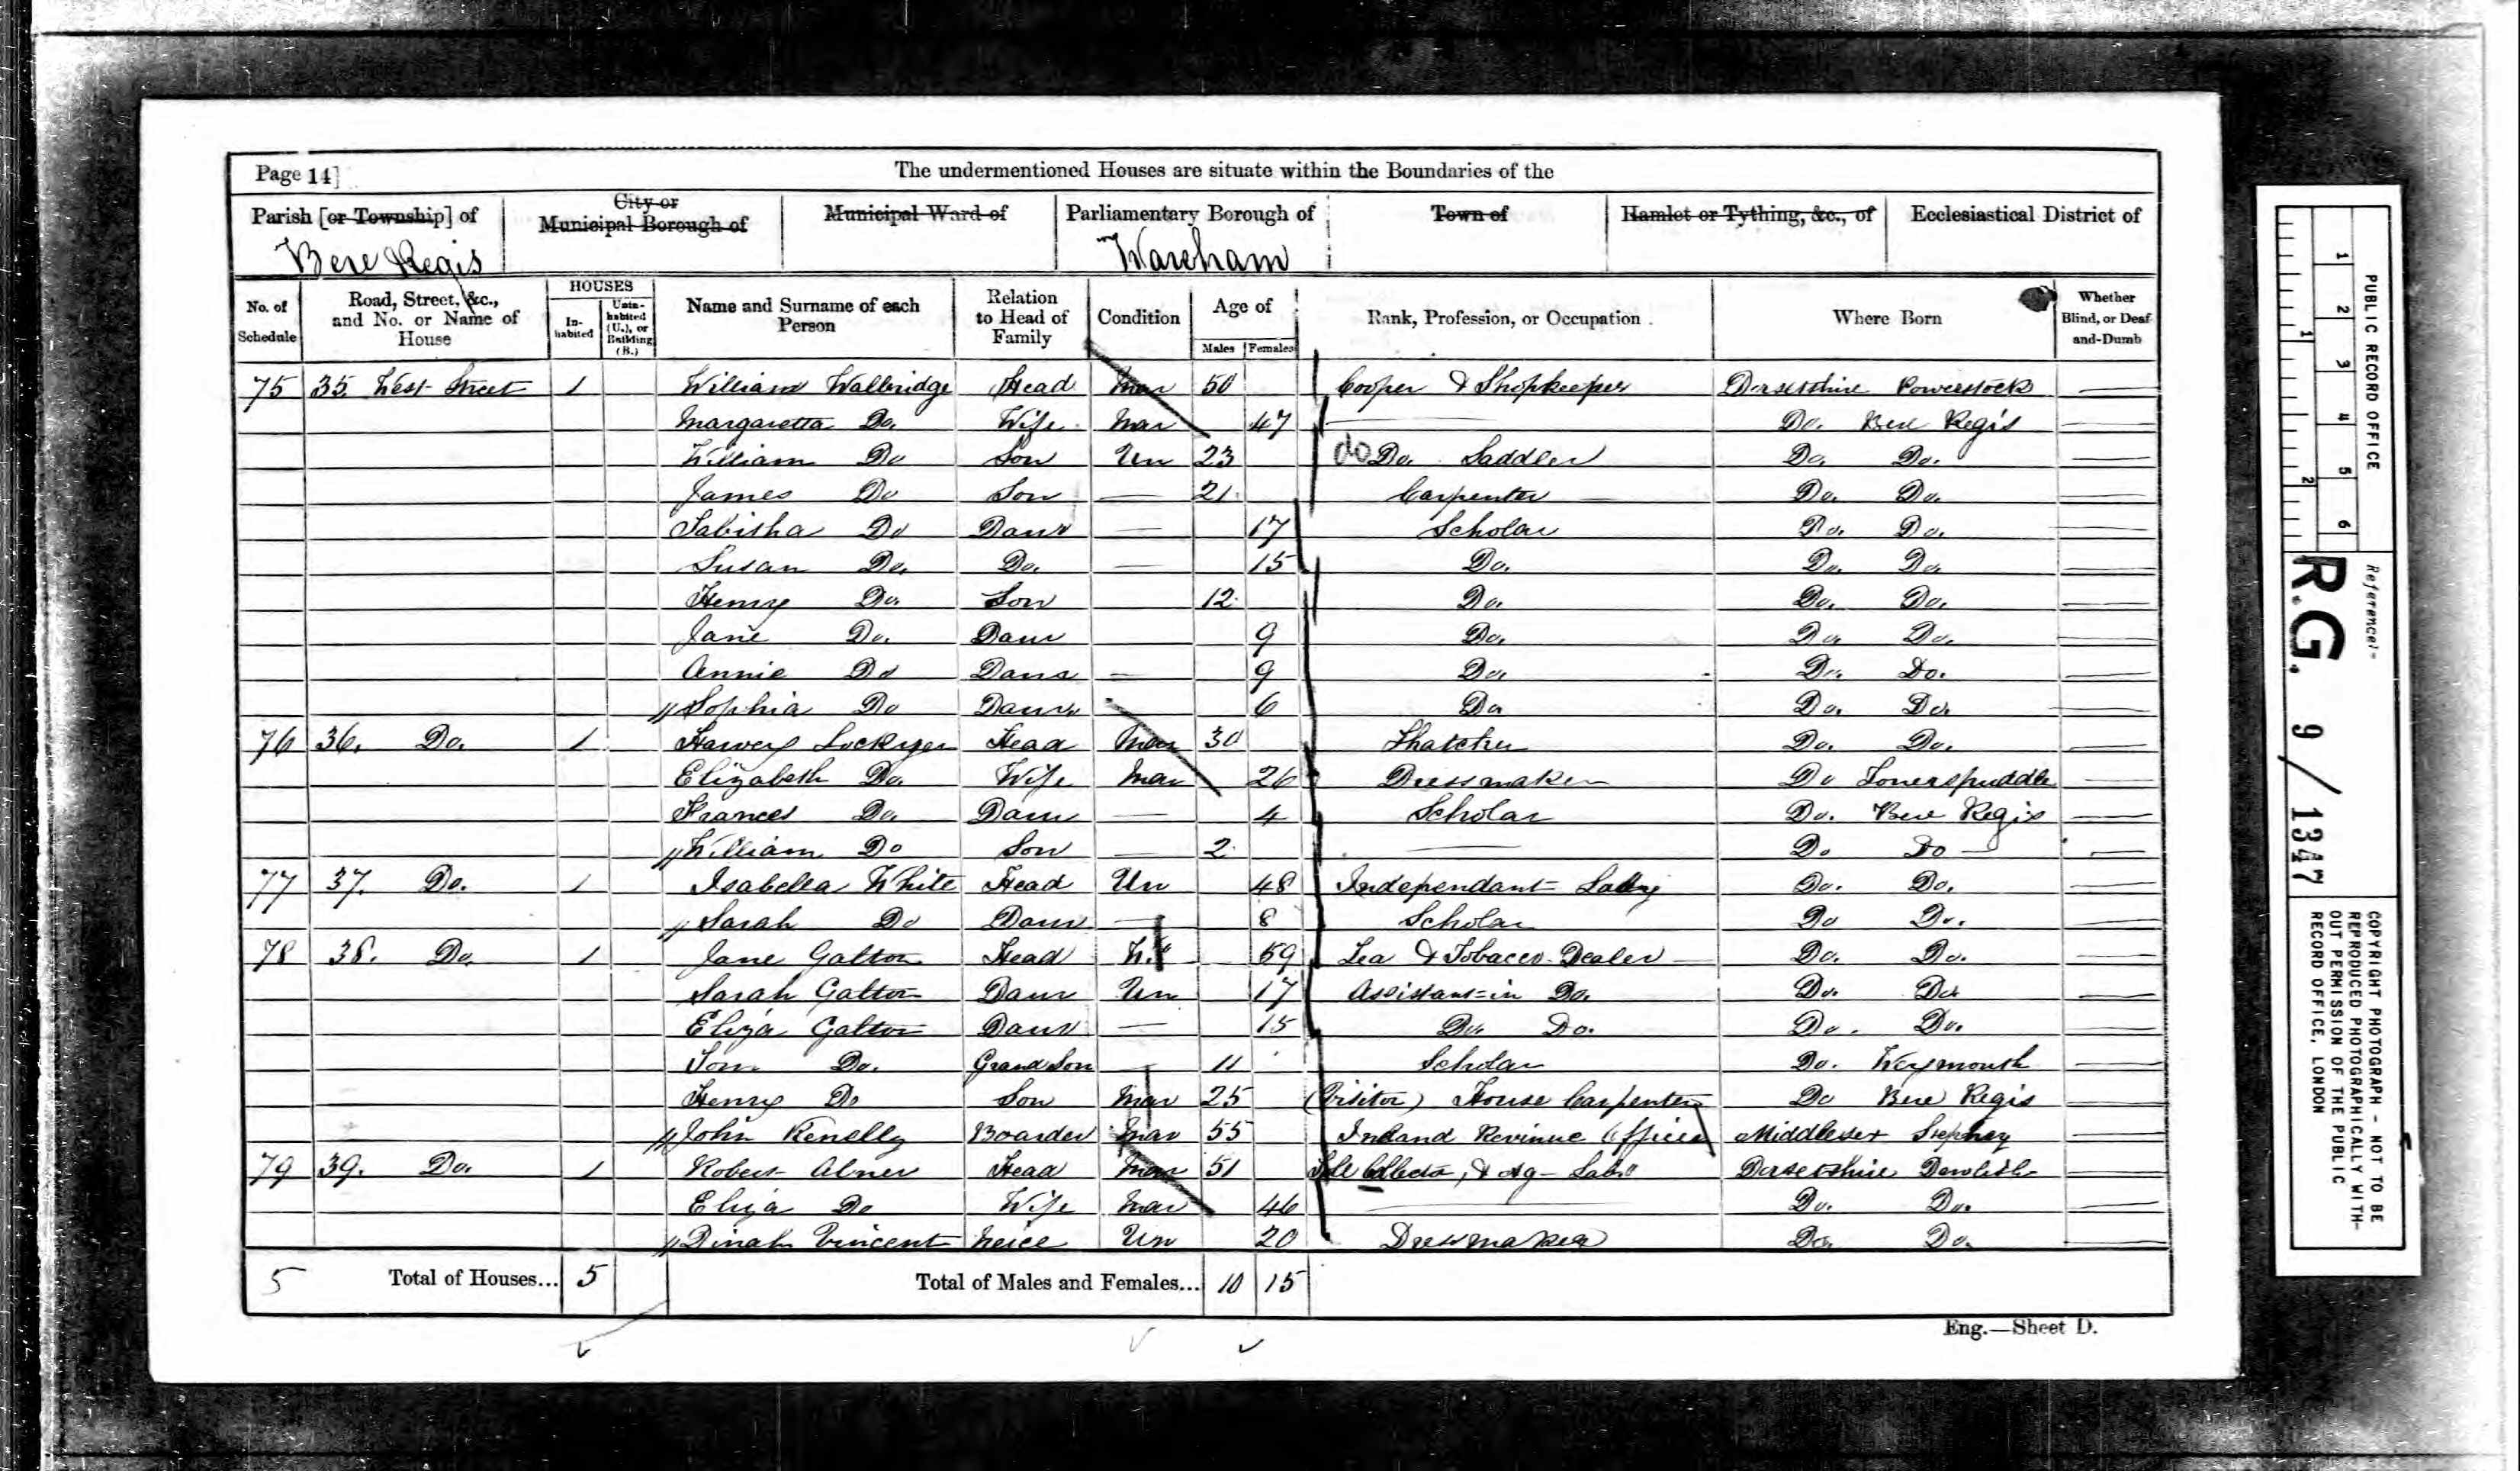 Page 14]
The undermentioned Houses are situate within the Boundaries of the
Parish [or Township] of
City or Municipal Borough of
Municipal Ward of
Parliamentary Borough of
Town of
Hamlet or Tything, &c., of
Ecclesiastical District of
Bere Regis
Wareham
No. of Schedule
Road, Street, &c., and No. or Name of House
HOUSES
In-habited
Unin-habited (U.), or Building (B.)
Name and Surname of each Person
Relation to Head of Family
Condition
Age of
Males
Females
Rank, Profession, or Occupation
Where Born
Whether Blind, or Deaf-and-Dumb
75 35. West Street 1 William Walbridge Head Mar 50 Cooper & Shopkeeper Dorsetshire Powerstock
Margaretta Do. Wife Mar 47 Do. Bere Regis
William Do Son Un 23 do Do. Saddler Do. Do.
James Do Son 21 Carpenter Do. Do.
Tabitha Do Daur 17 Scholar Do. Do.
Susan Do. Do. 15 Do. Do. Do.
Henry Do. Son 12 Do. Do. Do.
Jane Do. Daur 9 Do. Do. Do.
Annie Do Daur 9 Do. Do. Do.
Sophia Do Daur 6 Do Do. Do.
76 36. Do. 1 Harvey Lockyer Head Mar 30 Thatcher Do. Do.
Elizabeth Do. Wife Mar 26 Dressmaker Do Tonerspuddle
Frances Do. Daur 4 Scholar Do. Bere Regis
William Do Son 2 Do Do
77 37. Do. 1 Isabella White Head Un 48 Independant Lady Do. Do.
Sarah Do Daur 8 Scholar Do Do.
78 38. Do. 1 Jane Galton Head W. 59 Tea & Tobacco Dealer Do. Do.
Sarah Galton Daur Un 17 Assistant in Do. Do. Do
Eliza Galton Daur 15 Do. Do. Do. Do.
Tom Do. Grand Son 11 Scholar Do. Weymouth
Henry Do Son Mar 25 (Visitor) House Carpenter Do Bere Regis
John Kenelly Boarder Mar 55 Inland Revinue Officer Middlesex Stepney
79 39. Do. 1 Robert Abner Head Mar 51 Collector, & Ag Lab. Dorsetshire Dewlish
Eliza Do Wife Mar 46 Do. Do.
Dinah Vincent Neice Un 20 Dressmaker Do. Do.
5 Total of Houses... 5 Total of Males and Females... 10 15
Eng.—Sheet D.
PUBLIC RECORD OFFICE
1 2 3 4 5 6
1 2
Reference:-
R.G. 9/1347
COPYRIGHT PHOTOGRAPH - NOT TO BE
REPRODUCED PHOTOGRAPHICALLY WITH-
OUT PERMISSION OF THE PUBLIC
RECORD OFFICE, LONDON